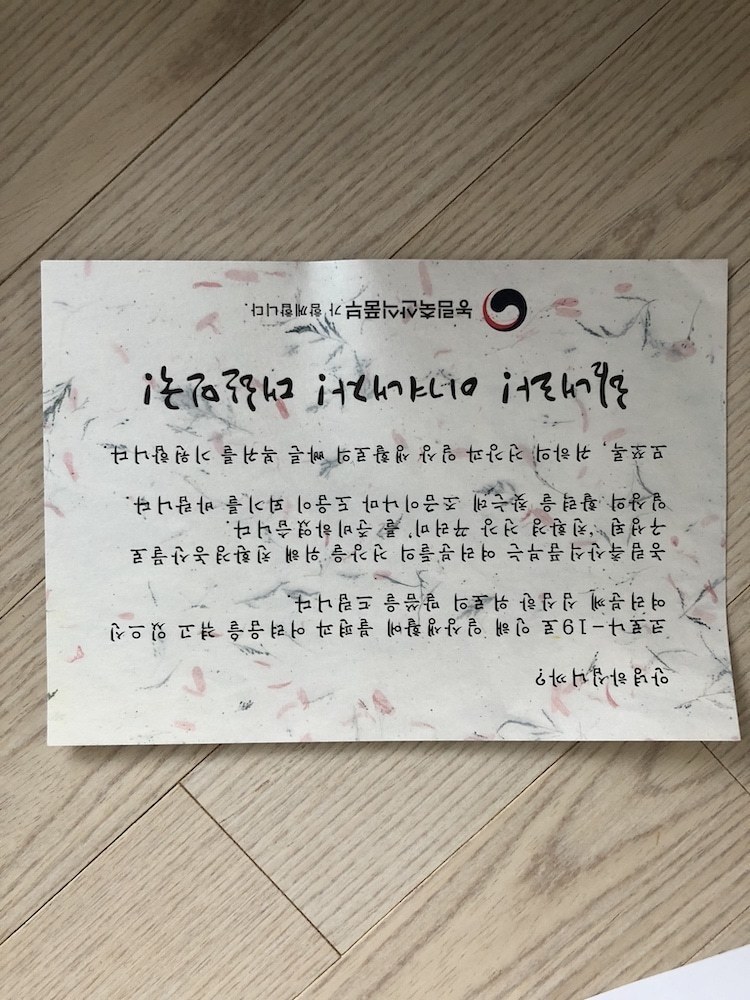 안녕하십니까?
코로나-19로 인해 일상생활에 불편과 어려움을 겪고 있으신
여러분께 심심한 위로의 말씀을 드립니다.
농림축산식품부는 여러분들의 건강을 위해 친환경농산물로
구성된 '친환경 건강 꾸러미'를 준비하였습니다.
일상의 활력을 찾는데 조금이나마 도움이 되기를 바랍니다.
모쪼록, 귀하의 건강과 일상 생활로의 빠른 복귀를 기원합니다
힘내라! 이겨내자! 대한민국!
농림축산식품부가 함께합니다.